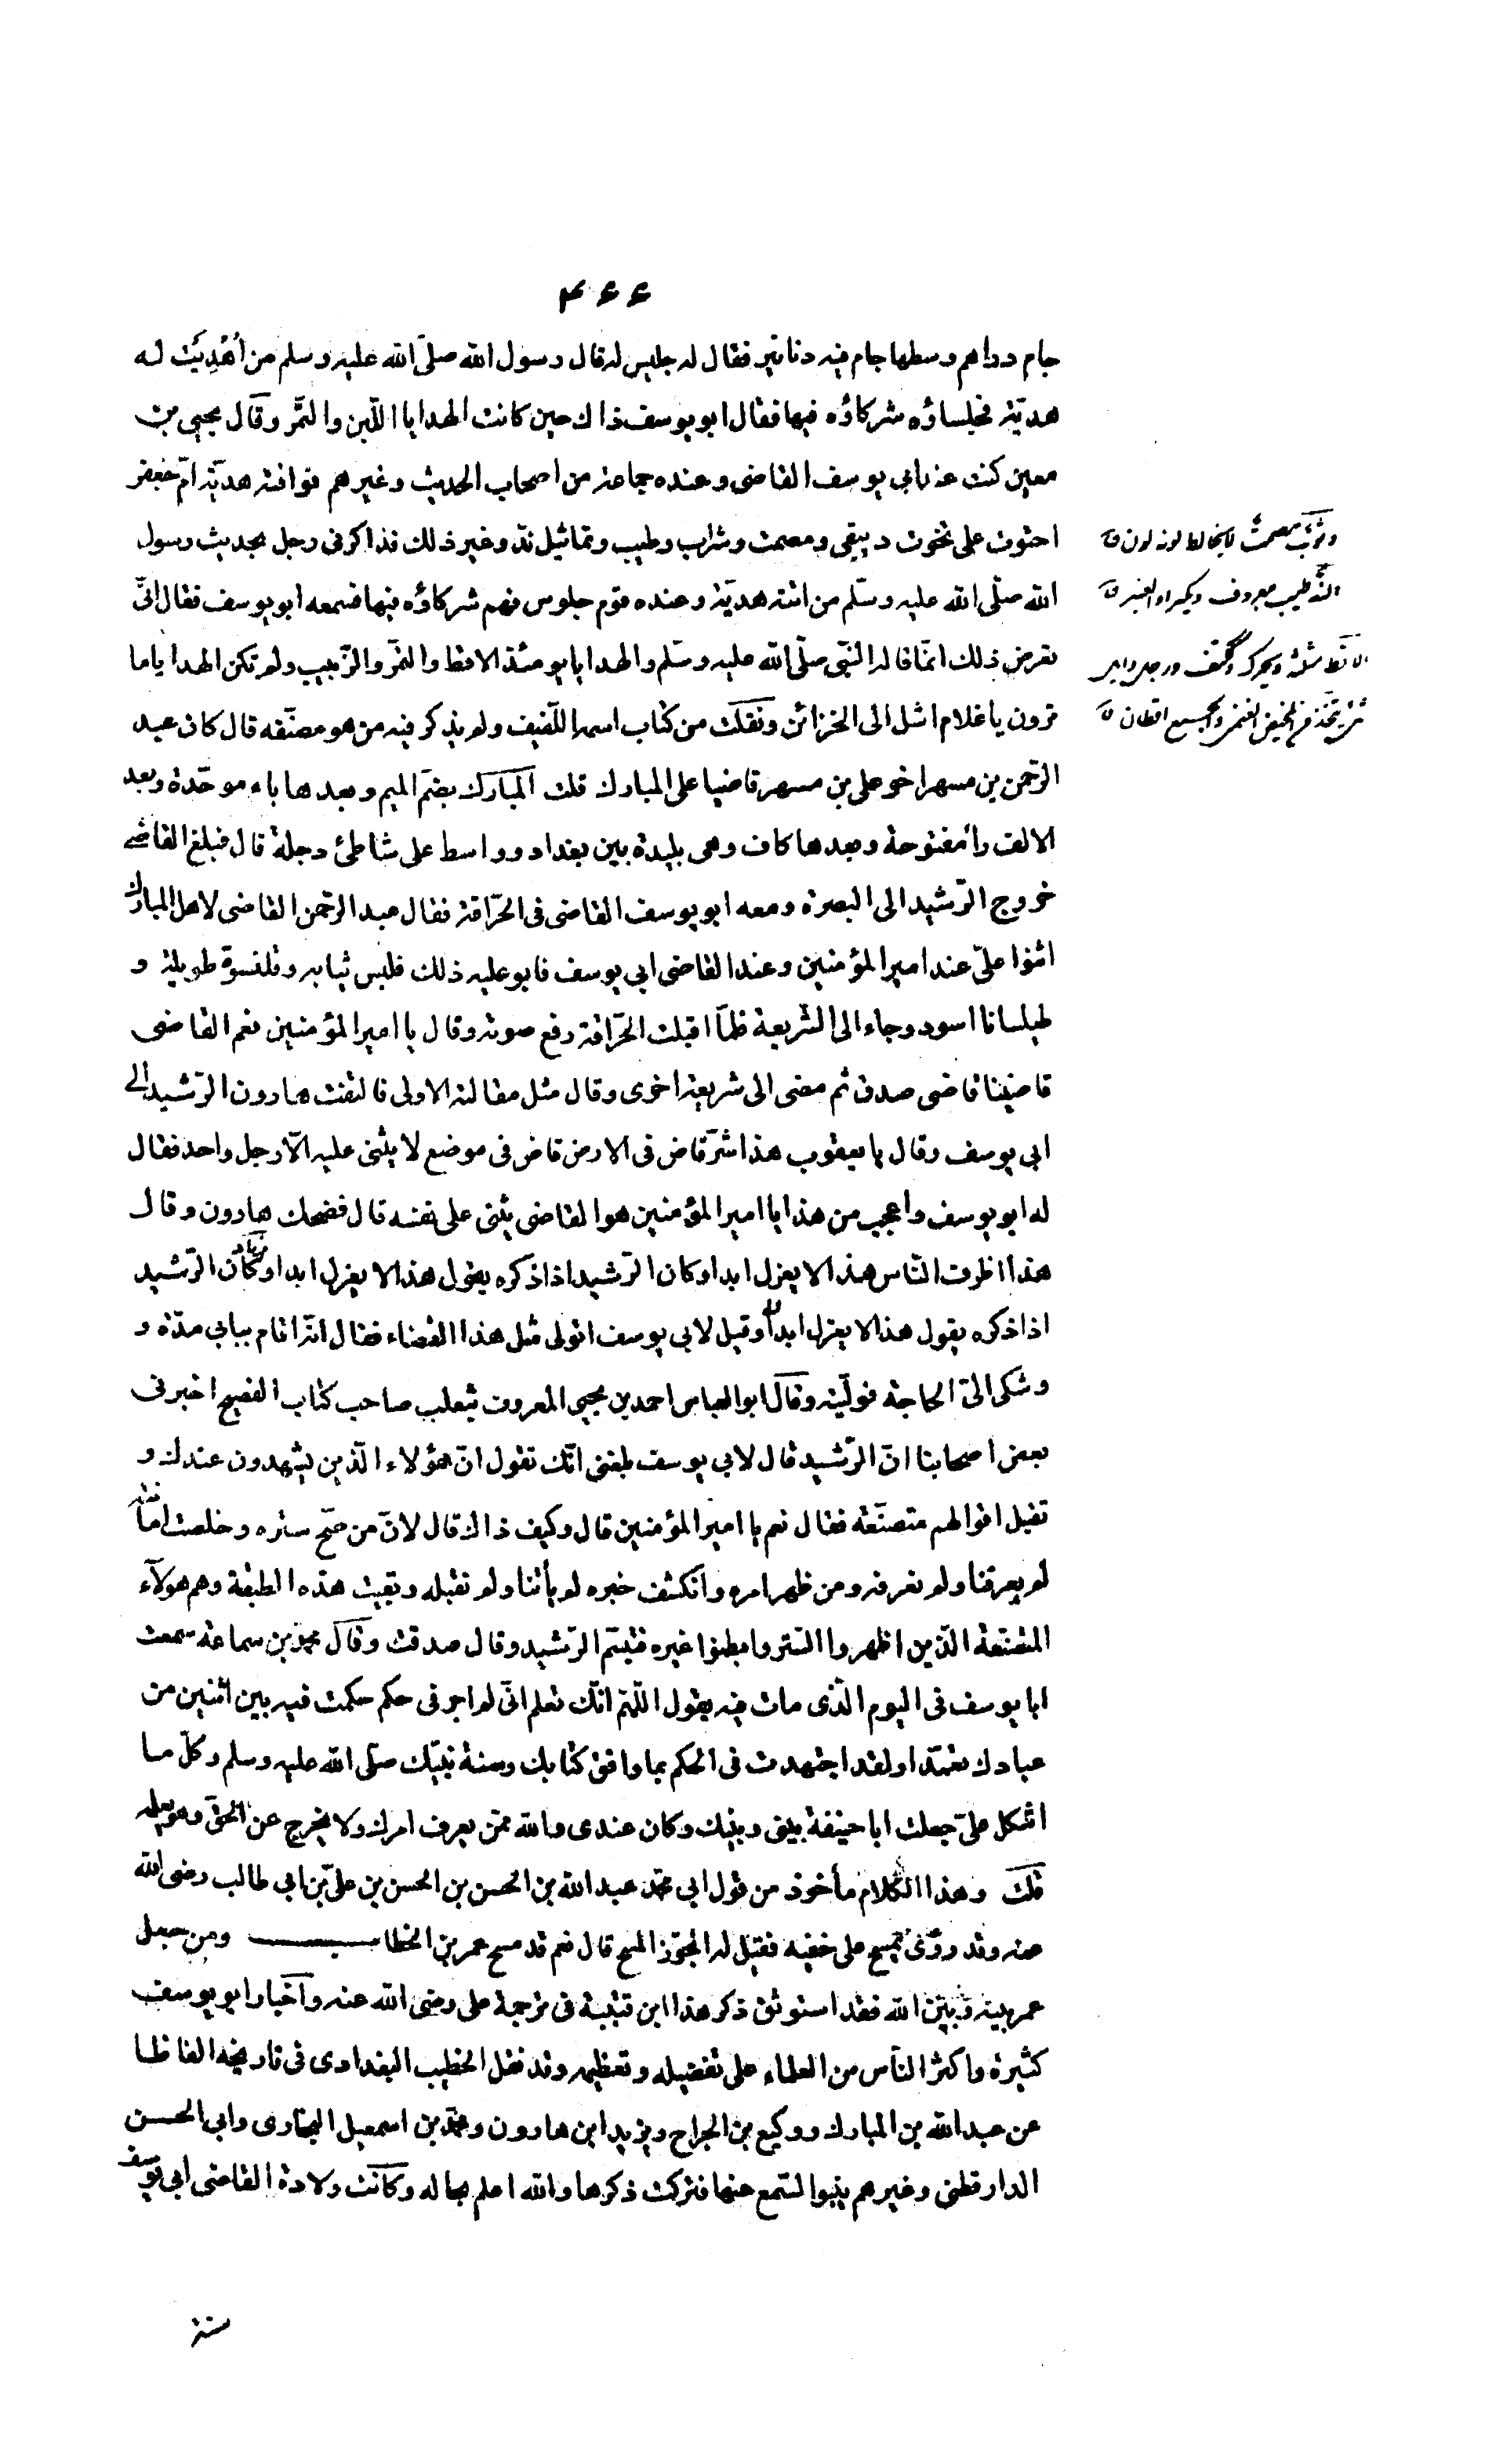 ۴۶۶
جام دراهم وسطها جام فيه دنانير فقال له جليس له قال رسول الله صلّى الله عليه وسلم من أُهْدِيَت له
هديّة فجلساؤه شركاؤه فيها فقال ابو يوسف ذاك حين كانت الهدايا اللّبن والتمر وقال يحيى بن
معين كنت عند ابي يوسف القاضى وعنده جماعة من اصحاب الحديث وغيرهم فوافته هديّة امّ جعفر
احتوت على تخوت دبيقى ومصمت وشراب وطيب وتماثيل ندّ وغير ذلك فذاكرنى رجل بحديث رسول
الله صلّى الله عليه وسلّم من اتته هديّة وعنده قوم جلوس فهم شركاؤه فيها فسمعه ابو يوسف فقال انّى
تعرض ذلك انّما قاله النّبى صلّى الله عليه وسلّم والهدايا يومئذ الاقط والتمر والزّبيب ولم تكن الهدايا ما
ترون يا غلام اشل الى الخزائن ونقلت من كتاب اسمه اللّفيف ولم يذكر فيه من هو مصنّفه قال كان عبد
الرّحمن بن مسهر اخو على بن مسهر قاضيا على المبارك قلت المبارك بضمّ الميم وبعدها باء موحّدة وبعد
الالف راء مفتوحة وبعدها كاف وهى بليدة بين بغداد وواسط على شاطئ دجلة قال فبلغ القاضى
خروج الرّشيد الى البصرة ومعه ابو يوسف القاضى فى الحرّاقة فقال عبد الرّحمن القاضى لاهل المبارك
اثنوا علىّ عند امير المؤمنين وعند القاضى ابى يوسف فابو عليه ذلك فلبس ثيابه وقلنسوة طويلة و
طيلسانا اسود وجاء الى الشّريعة فلمّا اقبلت الحرّاقة رفع صوته وقال يا امير المؤمنين نعم القاضى
قاضينا قاضى صدق ثم مضى الى شريعة اخرى وقال مثل مقالته الاولى فالتفت هارون الرّشيد الى
ابى يوسف وقال يا يعقوب هذا شرّ قاض فى الارض قاض فى موضع لا يثنى عليه الّا رجل واحد فقال
له ابو يوسف واعجب من هذا يا امير المؤمنين هو القاضى يثنى على نفسه قال فضحك هارون وقال
هذا اظرف النّاس هذا لا يعزل ابدا وكان الرّشيد اذا ذكره يقول هذا لا يعزل ابدا وكان الرّشيد
اذا ذكره يقول هذا لا يعزل ابدا وقيل لابى يوسف اتولى مثل هذا القضاء فقال انّه اقام ببابى مدّة و
وشكى الىّ الحاجة فولّيته وقال ابو العباس احمد بن يحيى المعروف بثعلب صاحب كتاب الفصيح اخبرنى
بعض اصحابنا انّ الرّشيد قال لابى يوسف بلغنى انّك تقول انّ هؤلاء الّذين يشهدون عندك و
تقبل اقوالهم متصنّعة فقال نعم يا امير المؤمنين قال وكيف ذاك قال لانّ من صحّ ستره وخلصت امانته
لم يعرفنا ولم نعرفه ومن ظهر امره وانكشف خبره لم يأتنا ولم نقبله وبقيت هذه الطبقة وهم هولآء
المتصنّعة الّذين اظهروا السّتر وابطنوا غيره فتبسّم الرّشيد وقال صدقت وقال محمّد بن سماعة سمعت
ابا يوسف فى اليوم الّذى مات فيه يقول اللّهمّ انّك تعلم انّى لم اجر فى حكم حكمت فيه بين اثنين من
عبادك تعمّدا ولقد اجتهدت فى الحكم بما وافق كتابك وسنة نبيّك صلّى الله عليه وسلم وكلّ ما
اشكل علىّ جعلت ابا حنيفة بينى وبينك وكان عندى والله ممّن يعرف امرك ولا يخرج عن الحقّ وهو يعلمه
قلت وهذا الكلام مأخوذ من قول ابى محمّد عبد الله بن الحسن بن الحسن بن علىّ بن ابى طالب رضى الله
عنه وقد رؤى يمسح على خفّيه فقيل له اتجوّز المسح قال نعم قد مسح عمر بن الخطاب ومن جعل
عمر بينه وبين الله فقد استوثق ذكر هذا ابن قتيبة فى ترجمة على رضى الله عنه وأخبار ابو يوسف
كثيرة واكثر النّاس من العلماء على تفضيله وتعظيمه وقد نقل الخطيب البغدادى فى تاريخه الفاظا
عن عبد الله بن المبارك ووكيع بن الجراح ويزيد ابن هارون ومحمّد بن اسمعيل البخارى وابى الحسن
الدارقطنى وغيرهم ينبوا لسّمع عنها فتركت ذكرها والله اعلم بحاله وكانت ولادة القاضى ابى يوسف
وثوب مصمت لا يخالط لونه لون ق
النّد طيب معروف ويكسر او العنبر ق
الاقط مثلثة ويحرك وككتف ورجل وابل
شئ يتخذ من المخيض الغنمى والجمع اقطان ق
سنة